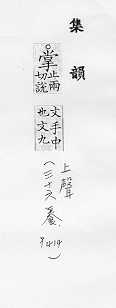 集韻
掌止兩切說
文手中也文九
上聲
(三十六養,